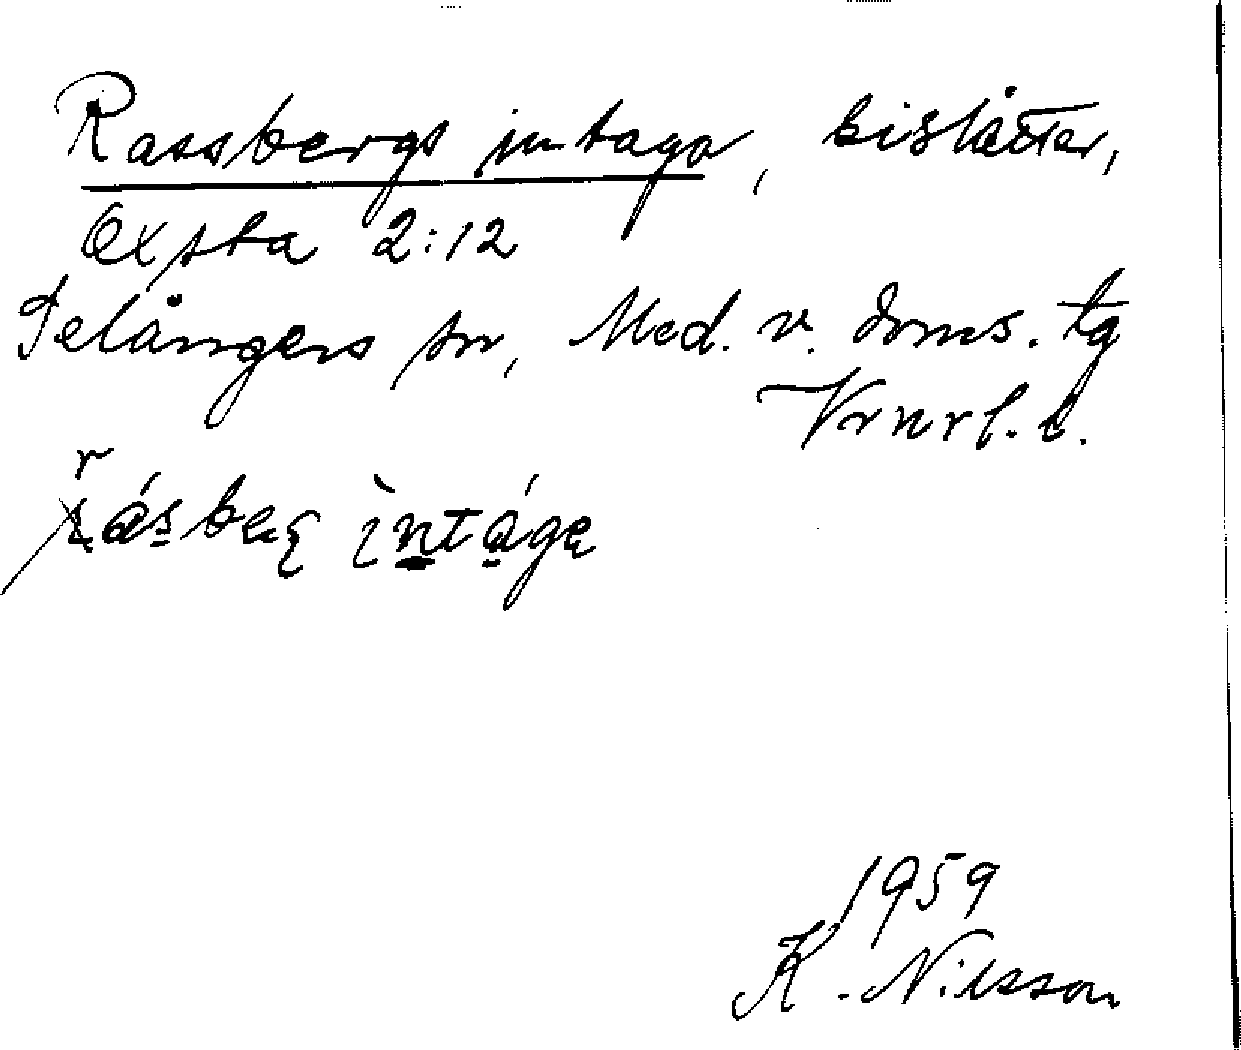 Rassbergs intaga, bislåtter,
Öxsta 2:12
Selångers sn, Med. v. doms. tg
Vrnrl. l.
r
ásbeg ìntáge
1959
K. Nilsson